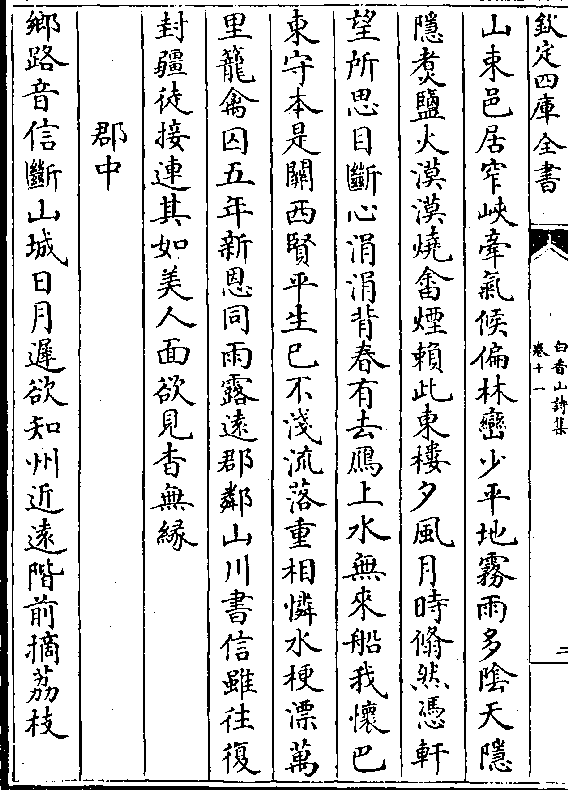 欽定四庫全書
白香山詩集
卷十一
二
山東邑居窄峽牽氣候偏林巒少平地霧雨多陰天隱
隱煑鹽火漠漠燒畬煙賴此東樓夕風月時翛然憑軒
望所思目斷心涓涓背春有去鴈上水無來船我懷巴
東守本是關西賢平生已不淺流落重相憐水梗漂萬
里籠禽囚五年新恩同雨露遠郡鄰山川書信雖往復
封疆徒接連其如美人面欲見杳無縁
郡中
鄉路音信斷山城日月遲欲知州近遠階前摘荔枝